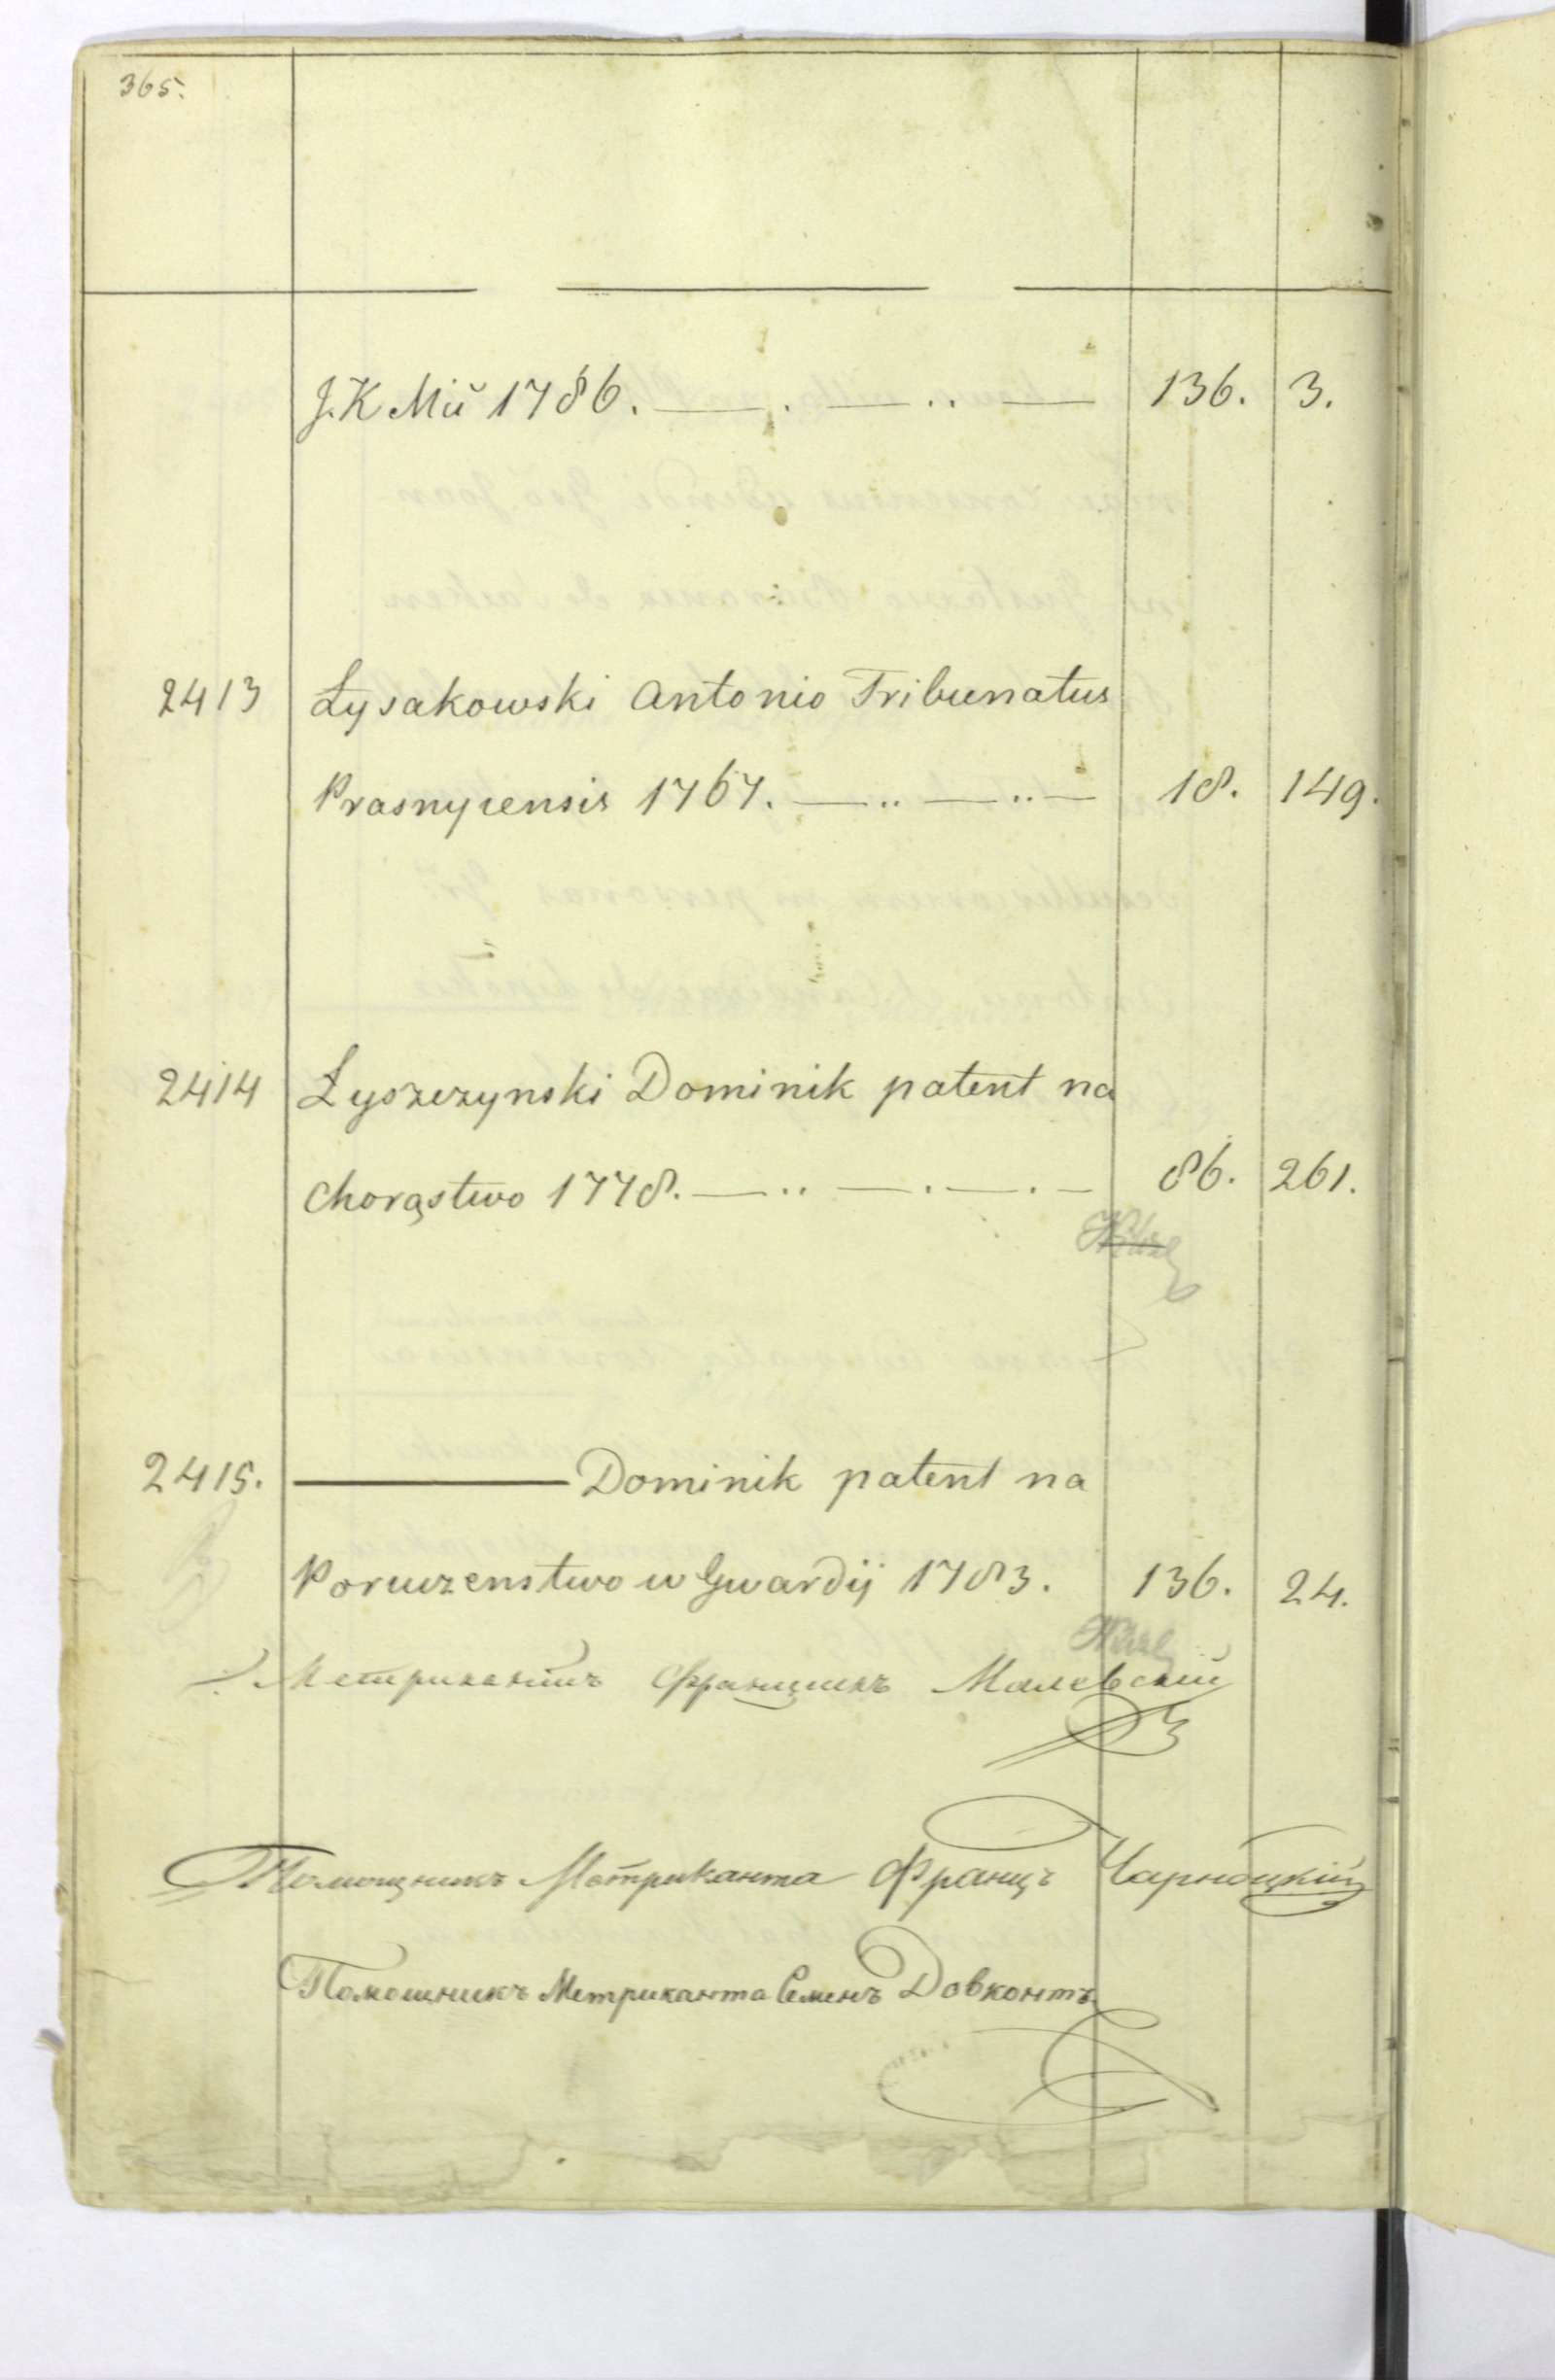 365.
J. K Mci 1786. —— . —— .. —— 136. 3.
2413 Łysakowski Antonio Tribunatus
Prasnycensis 1767. —— .. —— .. —— 18. 149.
2414 Łyszczynski Dominik patent na
Chorąstwo 1778. —— .. —— . —— . — 86. 261.
2415. ——— Dominik patent na
Poruczenstwo w Gwardij 1783. 136. 24.
Метрикантъ Францискъ Малевскій
Помощникъ Метриканта Францъ Чарноцкій
Помощникъ Метриканта Семенъ Довконтъ